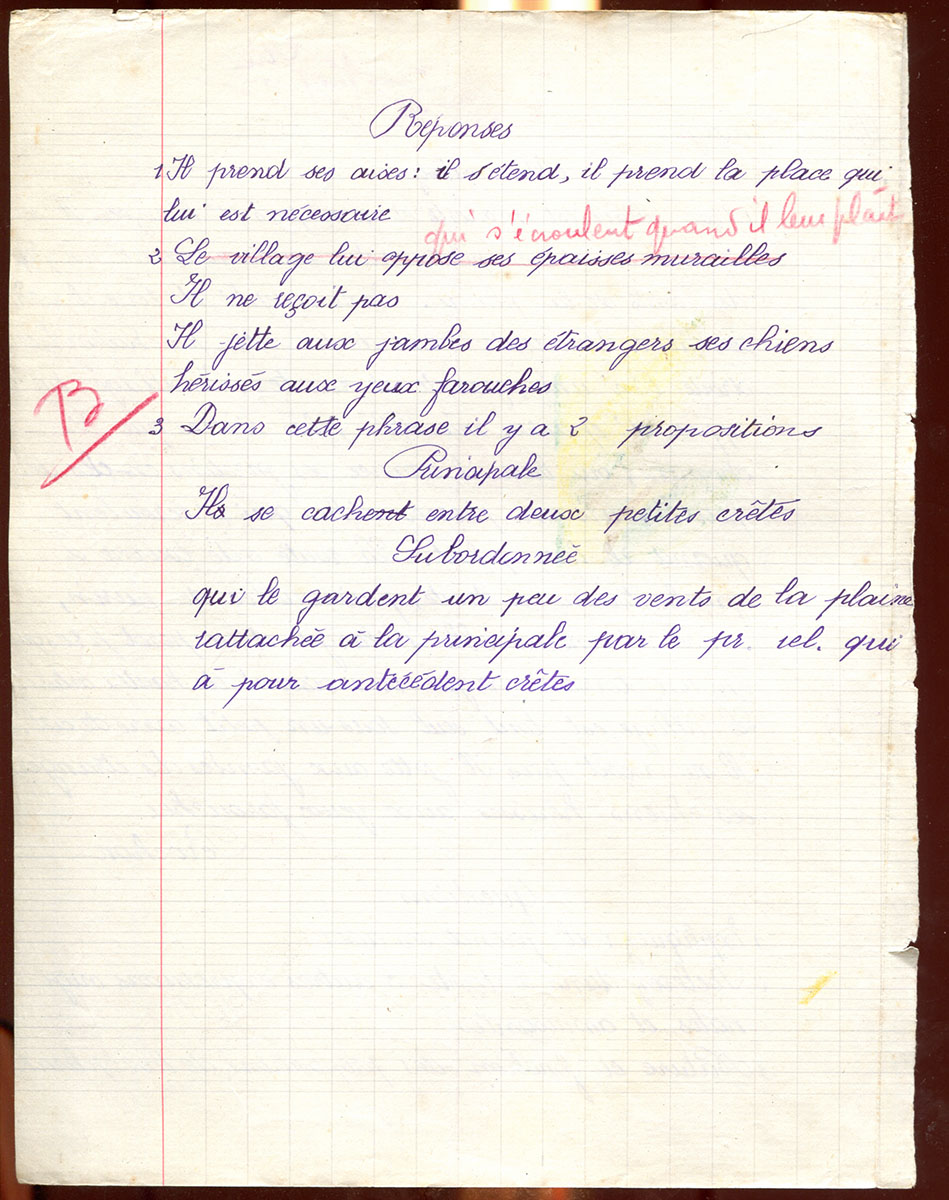 Réponses
1 Il prend ses aises: il s'étend, il prend la place qui
lui est nécessaire
qui s'écroulent quand il leur plaît
2 Le village lui oppose ses épaisses murailles
Il ne reçoit pas
Il jette aux jambes des étrangers ses chiens
hérissés aux yeux farouches
B
3 Dans cette phrase il y a 2 propositions
Principale
Ils se cachent entre deux petites crêtes
Subordonnée
qui le gardent un peu des vents de la plaine
rattachée à la principale par le pr. rel. qui
à pour antécédent crêtes